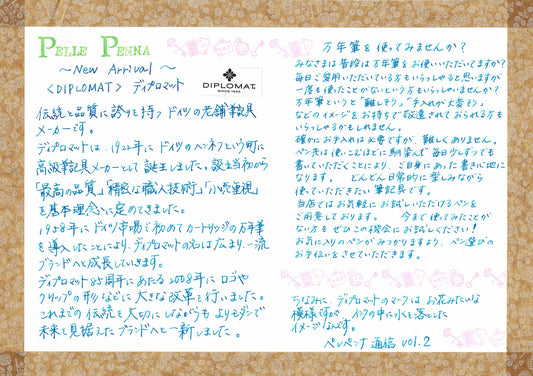 PELLE PENNA
～New Arrival～
〈DIPLOMAT〉 ディプロマット
DIPLOMAT
SINCE 1922
伝統と品質に誇りを持つ ドイツの老舗筆記具
メーカーです。
ディプロマットは、1922年に ドイツのヘンネフという町に
高級筆記具メーカーとして誕生しました。設立当初から
「最高の品質」「精密な職人技術」「小売重視」
を基本理念に定めてきました。
1958年に ドイツ市場で初めてカートリッジの万年筆
を導入したことにより、ディプロマットの名は広まり、一流
ブランドへと成長していきます。
ディプロマット85周年にあたる2008年に ロゴや
クリップの形などに 大きな改革を行いました。
これまでの 伝統を大切にしながらも よりモダンで
未来を見据えたブランドへと一新しました。
万年筆を使ってみませんか？
みなさまは普段は万年筆をお使いいただいてますか？
毎日ご愛用いただいている方もいらっしゃると思いますが
一度も使ったことがないという方もいらっしゃいませんか？
万年筆というと「難しそう」「手入れが大変そう」
などのイメージをお持ちで敬遠されておられる方も
いらっしゃるかもしれません。
確かにお手入れは必要ですが、難しくありません。
ペン先は使いこむほどに馴染んで 毎日少しずつでも
書いていただくことにより、ご自身にあった書き心地に
なります。 どんどん日常的に楽しみながら
使っていただきたい筆記具です。
当店ではお気軽にお試しいただけるペンを
ご用意しております。 今まで使ってみたことが
ない方も ぜひこの機会にお試しください！
お気に入りのペンがみつかりますよう、ペン選びの
お手伝いをさせていただきます。
ちなみに、ディプロマットのマークは お花みたいな
模様ですが、インクの中に水を落とした
イメージなんです。
ペレペンナ通信 vol.2